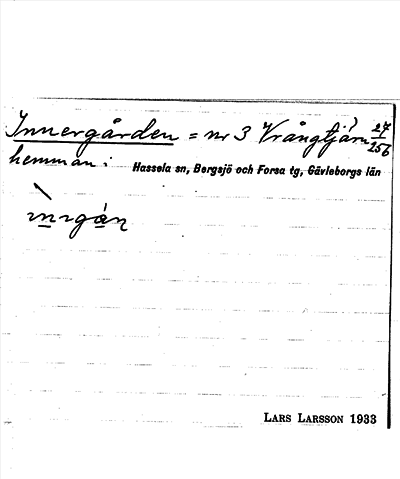 Innergården = nr 3 Vrångtjärn 27/256
hemman:
Hassela sn, Bergsjö och Forsa tg, Gävleborgs län
LARS LARSSON 1933